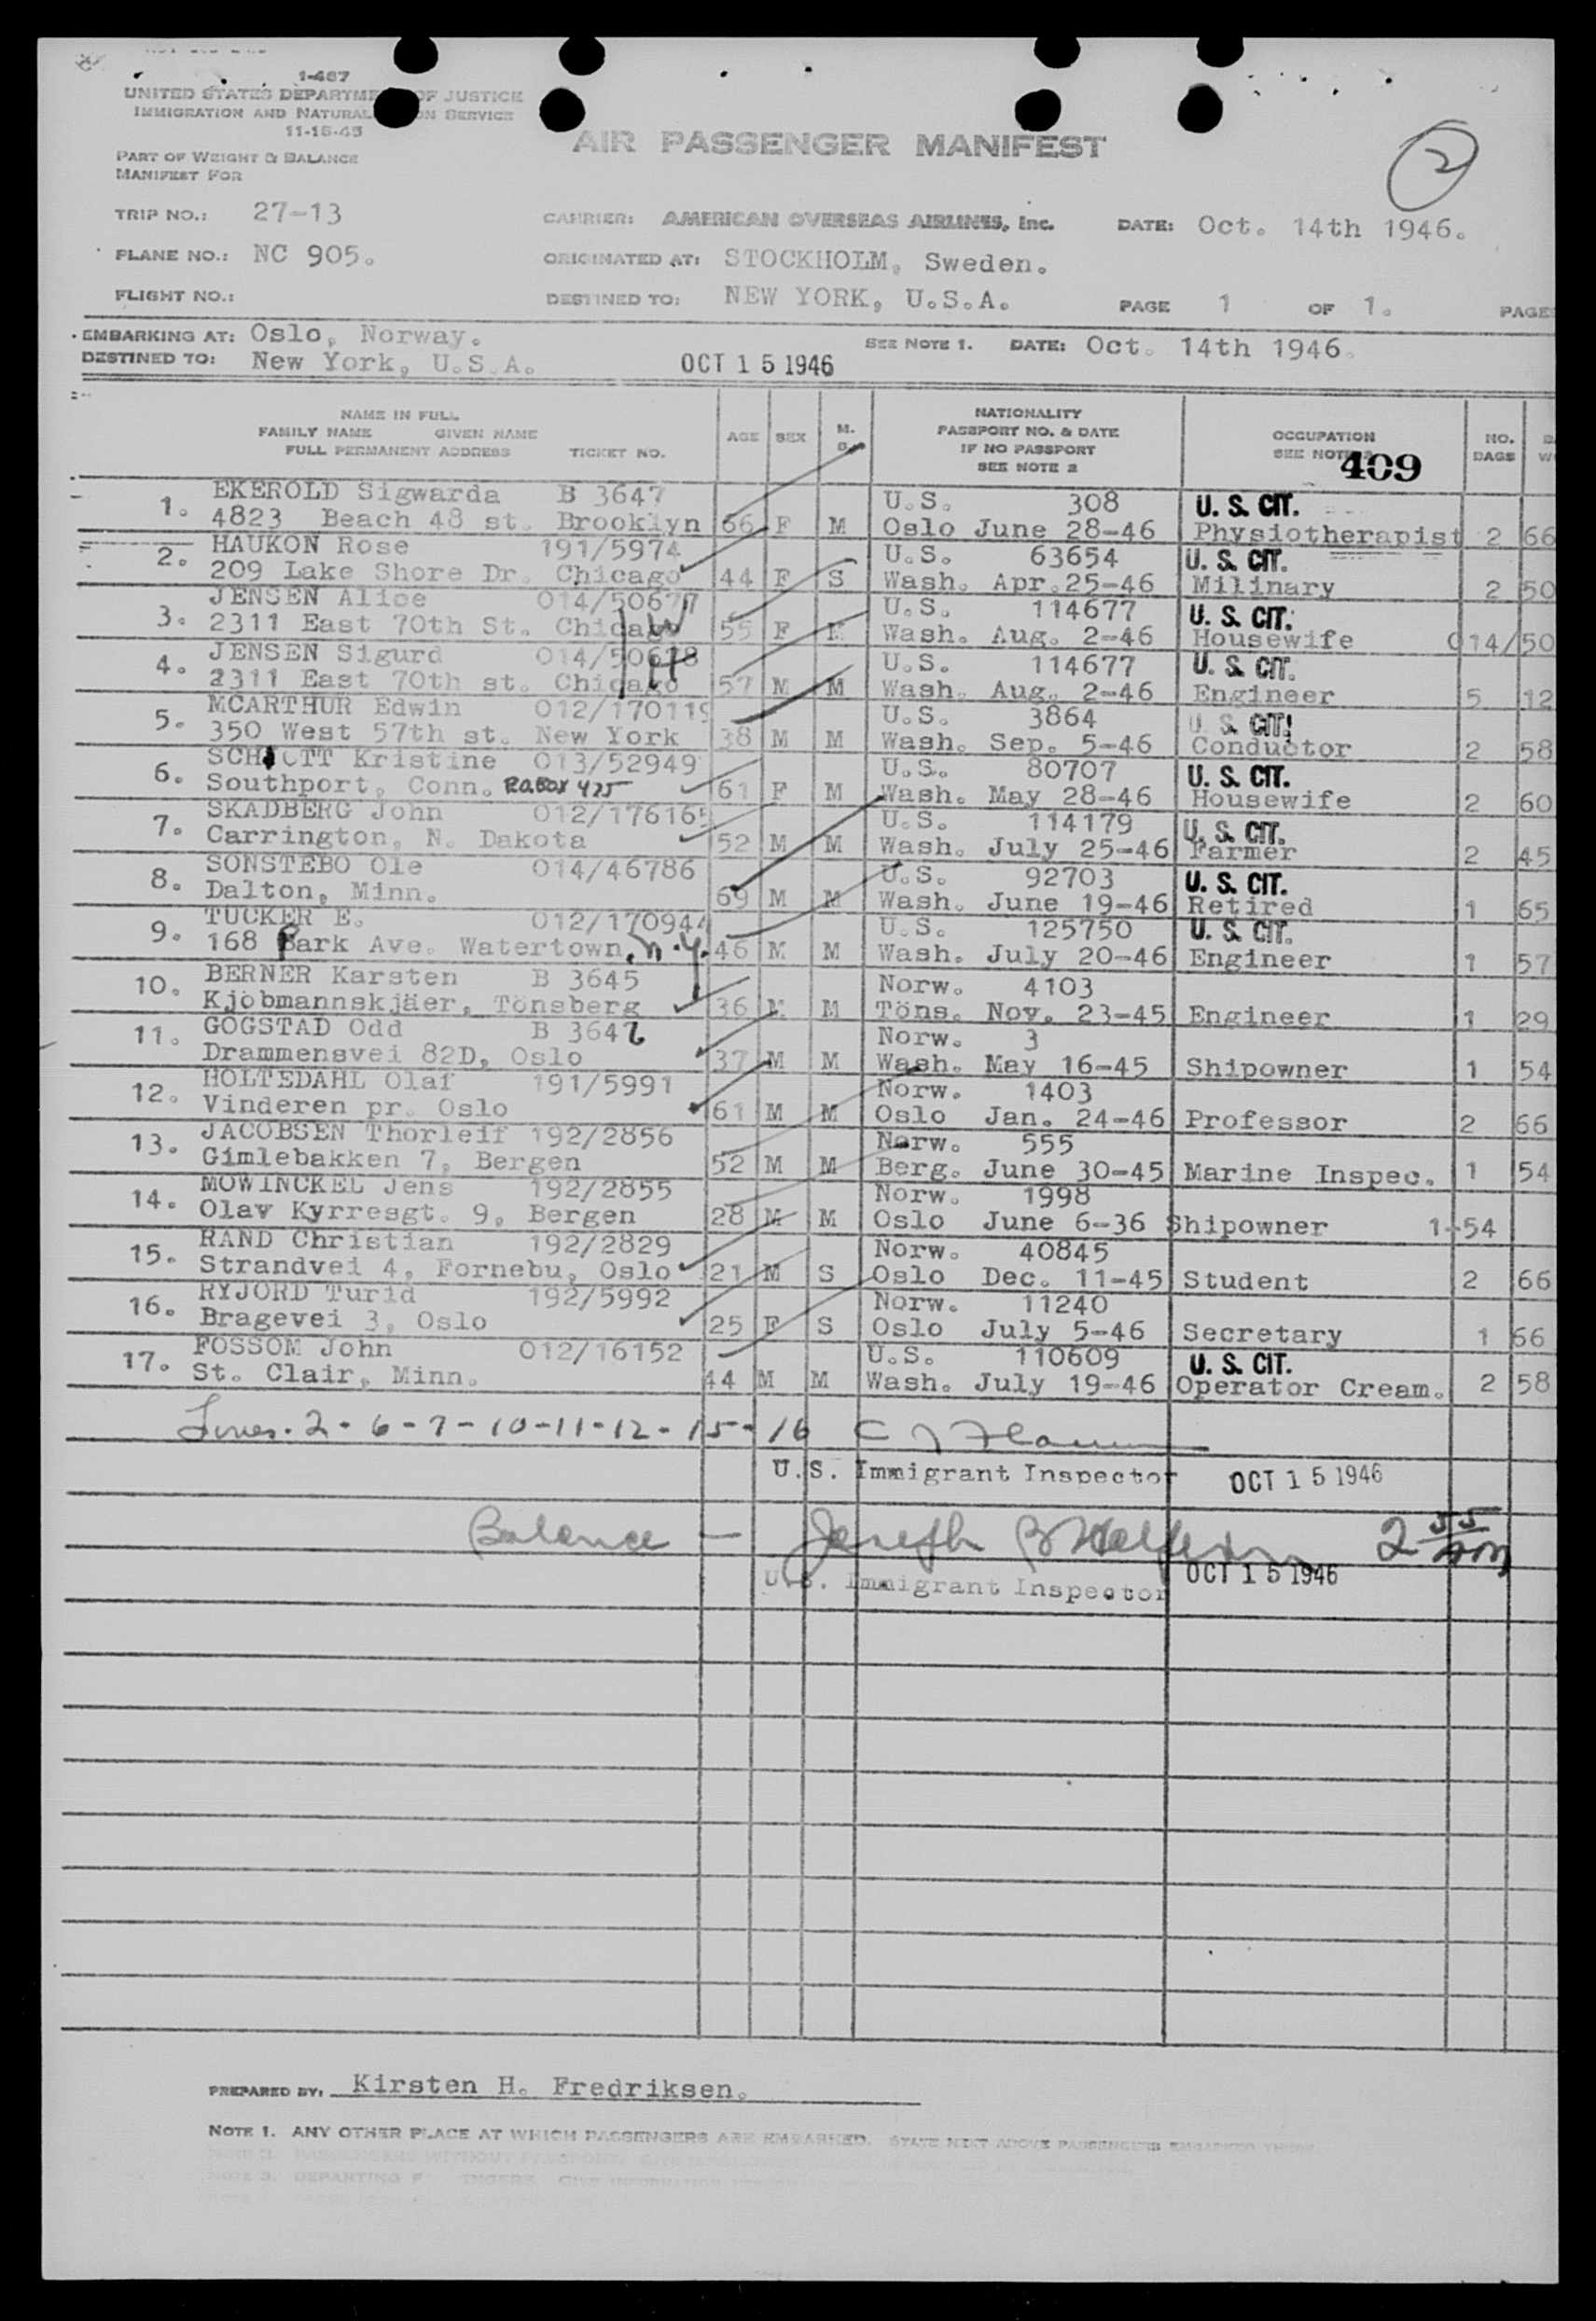 1-467
UNITED STATES DEPARTMENT OF JUSTICE
IMMIGRATION AND NATURALIZATION SERVICE
11-15-45
AIR PASSENGER MANIFEST
2
PART OF WEIGHT & BALANCE
MANIFEST FOR
TRIP NO.: 27-13 CARRIER: AMERICAN OVERSEAS AIRLINES, Inc. DATE: Oct. 14th 1946.
PLANE NO.: NC 905. ORIGINATED AT: STOCKHOLM, Sweden.
FLIGHT NO.: DESTINED TO: NEW YORK, U.S.A. PAGE 1 OF 1. PAGES
EMBARKING AT: Oslo, Norway. SEE NOTE 1. DATE: Oct. 14th 1946.
DESTINED TO: New York, U.S.A. OCT 15 1946
NAME IN FULL
FAMILY NAME GIVEN NAME
FULL PERMANENT ADDRESS TICKET NO. AGE SEX M. S. NATIONALITY
PASSPORT NO. & DATE
IF NO PASSPORT
SEE NOTE 2 OCCUPATION
SEE NOTE 409 NO. BAGS
1. EKEROLD Sigwarda B 3647 U.S. 308 U. S. CIT.
4823 Beach 48 st. Brooklyn 66 F M Oslo June 28-46 Physiotherapist 2 66
2. HAUKON Rose 191/5974 U.S. 63654 U. S. CIT.
209 Lake Shore Dr. Chicago 44 F S Wash. Apr.25-46 Milinary 2 50
3. JENSEN Alice 014/50677 U.S. 114677 U. S. CIT.
2311 East 70th St. Chicago W 55 F M Wash. Aug. 2-46 Housewife 014/50
4. JENSEN Sigurd 014/50678 U.S. 114677 U. S. CIT.
2311 East 70th st. Chicago H 57 M M Wash. Aug. 2-46 Engineer 5 12
5. MCARTHUR Edwin 012/170119 U.S. 3864 U. S. CIT.
350 West 57th st. New York 38 M M Wash. Sep. 5-46 Conductor 2 58
6. SCHIOTT Kristine 013/52949 U.S. 80707 U. S. CIT.
Southport, Conn. P.O.Box 425 61 F M Wash. May 28-46 Housewife 2 60
7. SKADBERG John 012/176165 U.S. 114179 U. S. CIT.
Carrington, N. Dakota 52 M M Wash. July 25-46 Farmer 2 45
8. SONSTEBO Ole 014/46786 U.S. 92703 U. S. CIT.
Dalton, Minn. 69 M M Wash. June 19-46 Retired 1 65
9. TUCKER E. 012/170944 U.S. 125750 U. S. CIT.
168 Park Ave. Watertown, N.Y. 46 M M Wash. July 20-46 Engineer 1 57
10. BERNER Karsten B 3645 Norw. 4103
Kjöbmannskjäer, Tönsberg 36 M M Töns. Nov. 23-45 Engineer 1 29
11. GOGSTAD Odd B 3646 Norw. 3
Drammensvei 82D, Oslo 37 M M Wash. May 16-45 Shipowner 1 54
12. HOLTEDAHL Olaf 191/5991 Norw. 1403
Vinderen pr. Oslo 61 M M Oslo Jan. 24-46 Professor 2 66
13. JACOBSEN Thorleif 192/2856 Norw. 555
Gimlebakken 7, Bergen 52 M M Berg. June 30-45 Marine Inspec. 1 54
14. MOWINCKEL Jens 192/2855 Norw. 1998
Olav Kyrresgt. 9, Bergen 28 M M Oslo June 6-36 Shipowner 1-54
15. RAND Christian 192/2829 Norw. 40845
Strandvei 4, Fornebu, Oslo 21 M S Oslo Dec. 11-45 Student 2 66
16. RYJORD Turid 192/5992 Norw. 11240
Bragevei 3, Oslo 25 F S Oslo July 5-46 Secretary 1 66
17. FOSSOM John 012/16152 U.S. 110609 U. S. CIT.
St. Clair, Minn. 44 M M Wash. July 19-46 Operator Cream. 2 58
Lines. 2 - 6 - 7 - 10 - 11 - 12 - 15 - 16
U.S. Immigrant Inspector OCT 15 1946
Balance — Joseph B 2 55
U.S. Immigrant Inspector OCT 15 1946
PREPARED BY: Kirsten H. Fredriksen.
NOTE 1. ANY OTHER PLACE AT WHICH PASSENGERS ARE EMBARKED, STATE NEXT ABOVE PASSENGERS EMBARKED THERE.